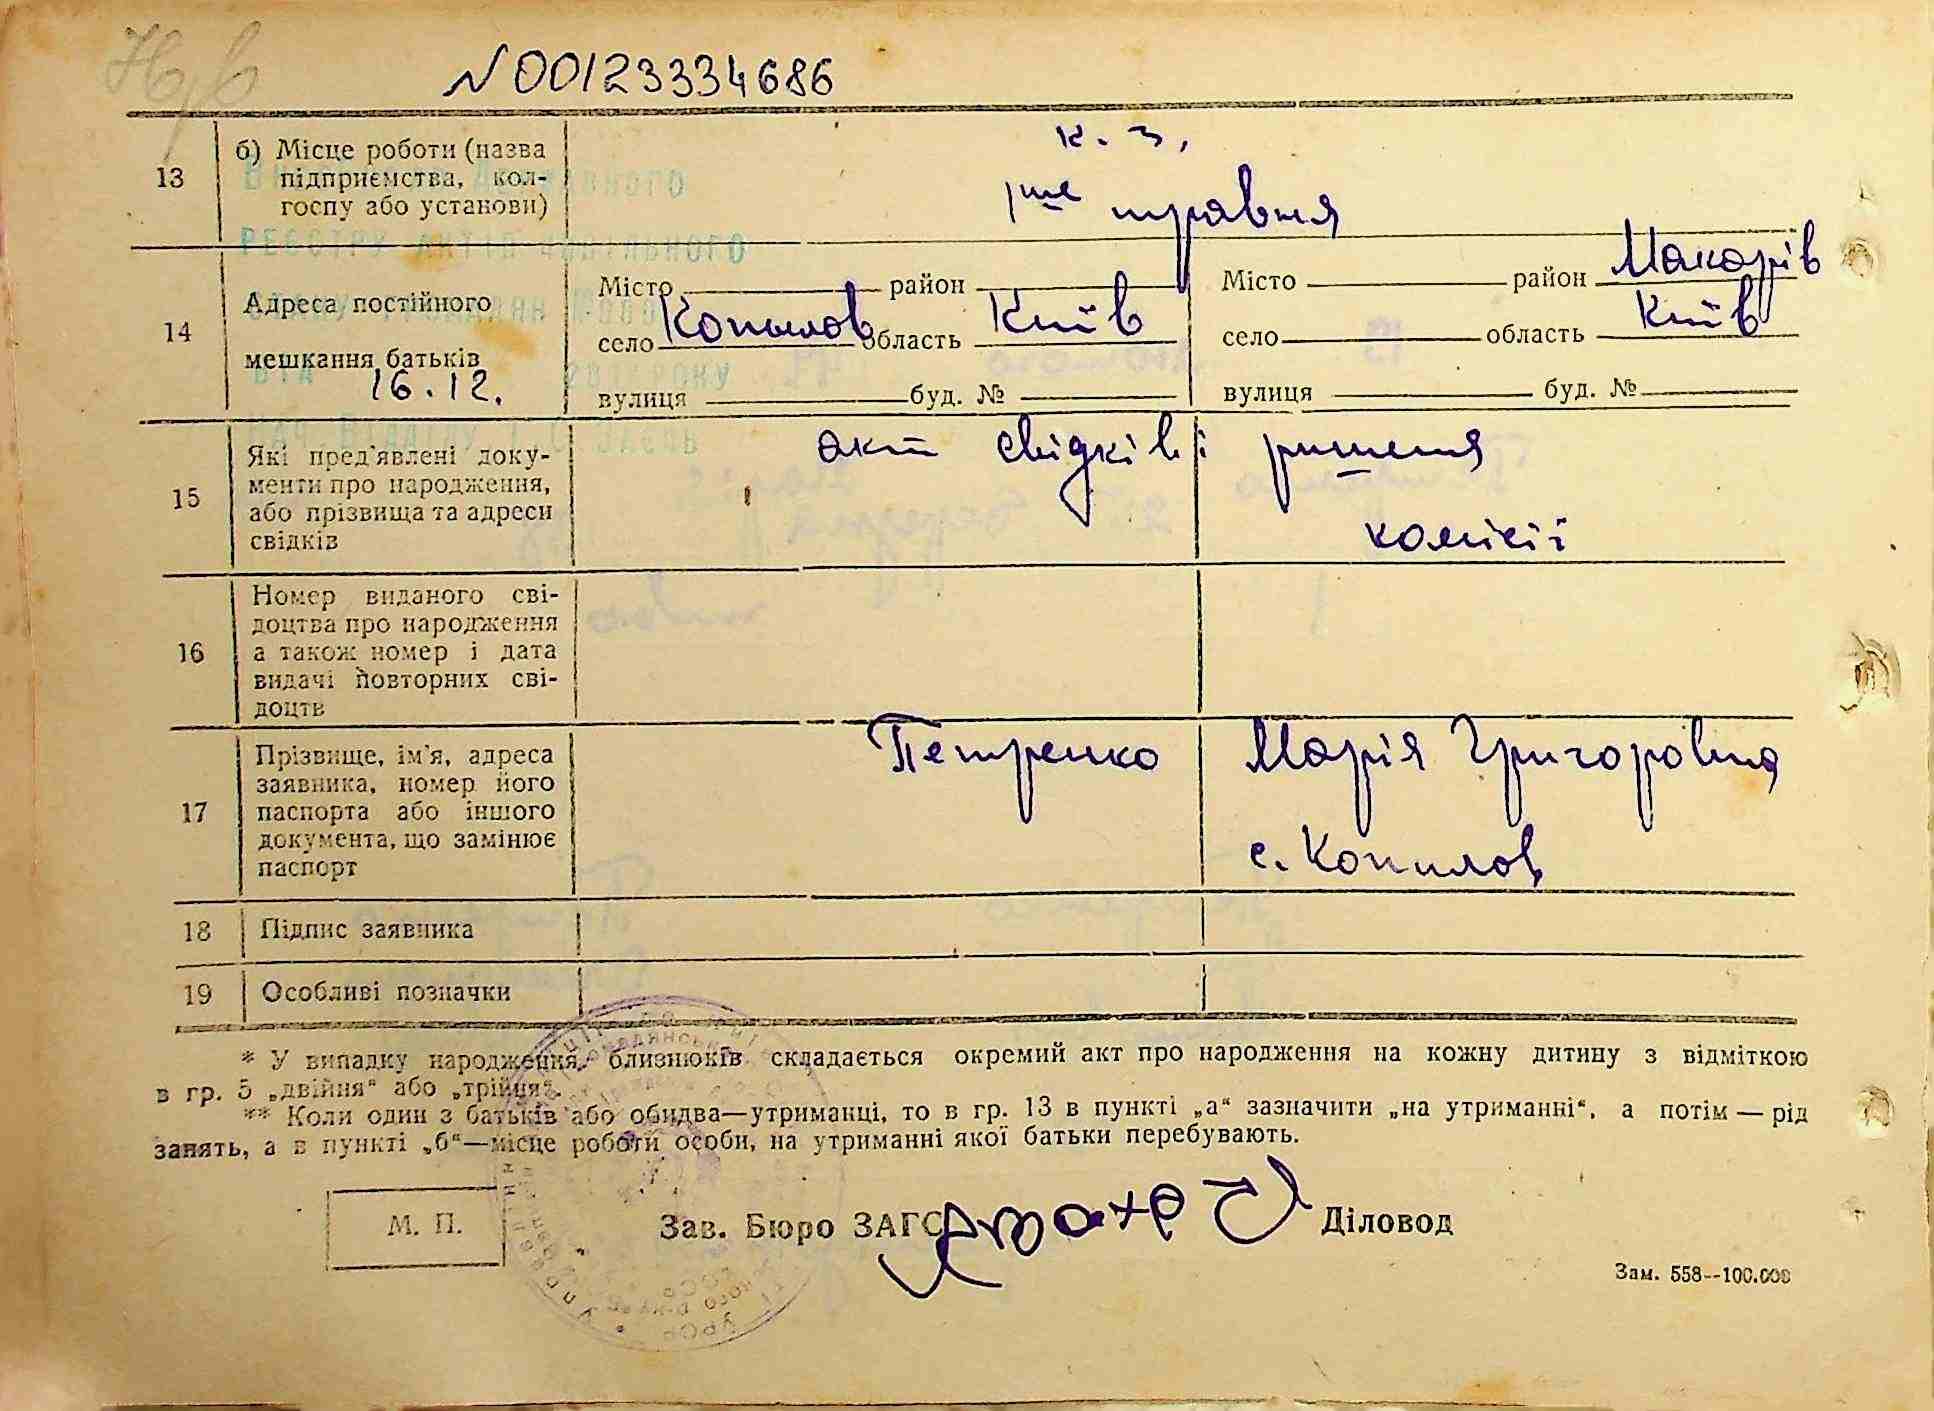 N 00123334686
13
б) Місце роботи (назва
підприємства, кол-
госпу або установи)
к. з,
1ше травня
14
Адреса постійного
мешкання батьків
16.12.
Місто район
село Копылов область Київ
вулиця буд. №
Місто район Макарів
село область Київ
вулиця буд. №
15
Які пред'явлені доку-
менти про народження,
або прізвища та адреси
свідків
акт свідків і ришення
комісії
16
Номер виданого сві-
доцтва про народження
а також номер і дата
видачі повторних сві-
доцтв
17
Прізвище, ім'я, адреса
заявника, номер його
паспорта або іншого
документа, що замінює
паспорт
Петренко Марія Григоровна
с. Копилов
18
Підпис заявника
19
Особливі позначки
* У випадку народження близнюків складається окремий акт про народження на кожну дитину з відміткою
в гр. 5 „двійня“ або „трійня“.
** Коли один з батьків або обидва—утриманці, то в гр. 13 в пункті „а“ зазначити „на утриманні“, а потім — рід
занять, а в пункті „б“—місце роботи особи, на утриманні якої батьки перебувають.
М. П.
Зав. Бюро ЗАГС
Діловод
Зам. 558--100.000